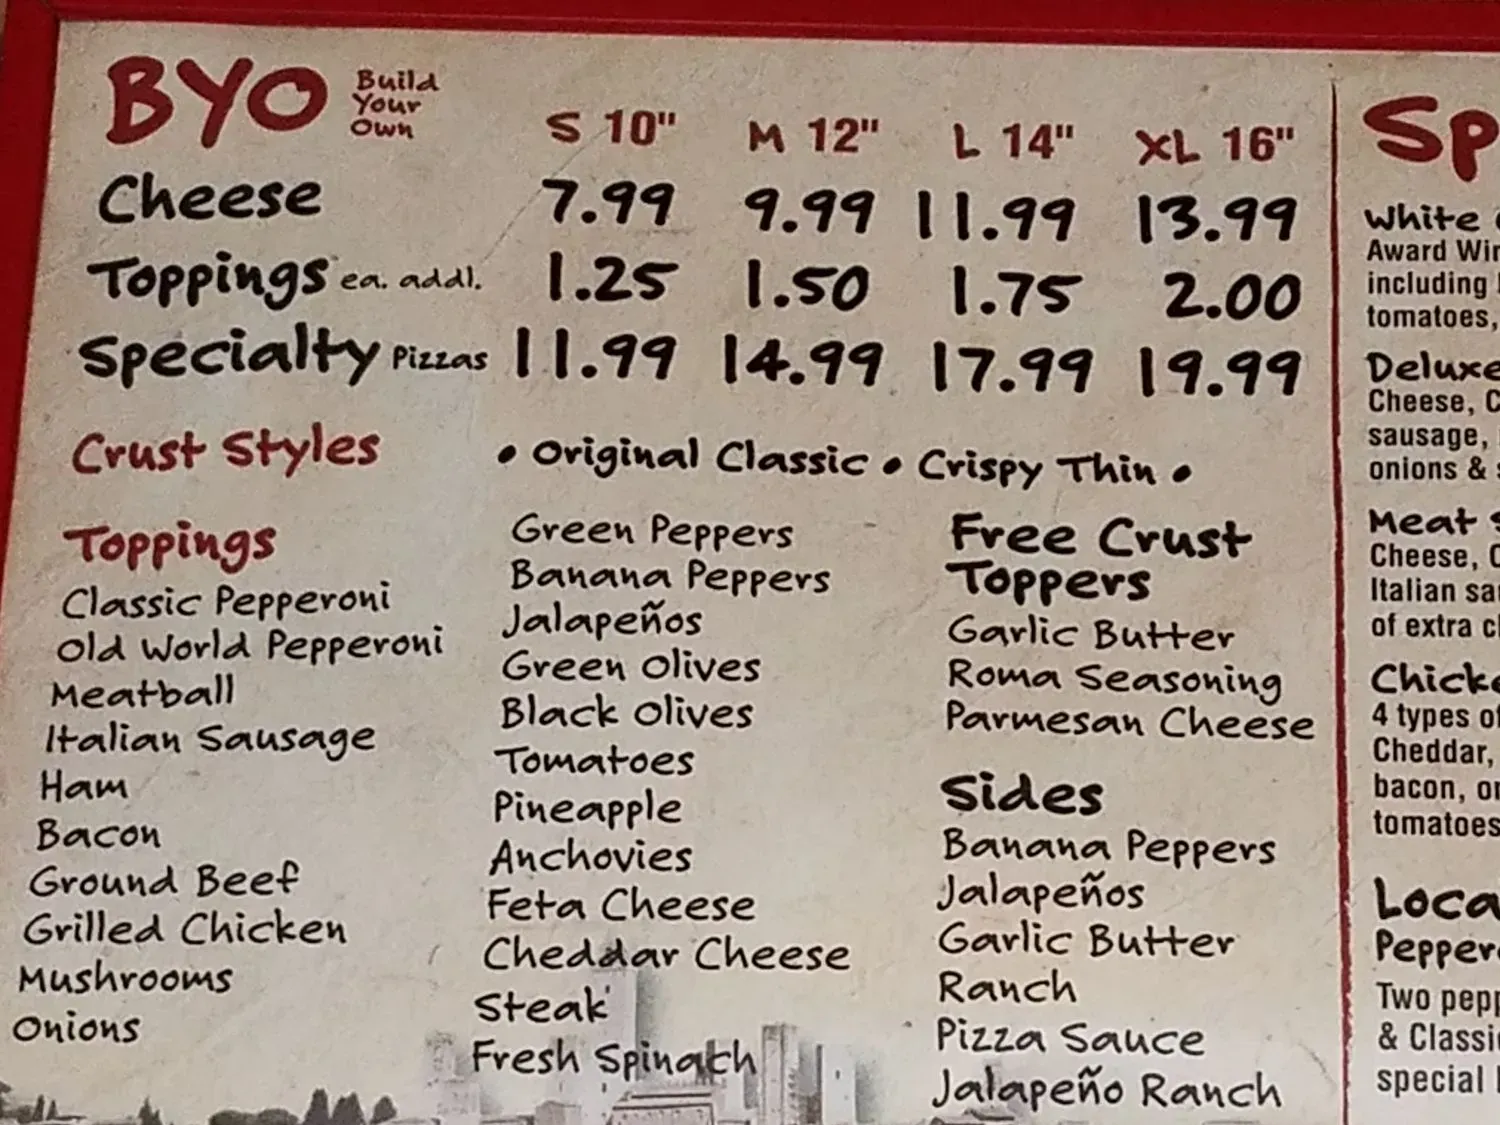 BYO Build Your Own
S 10" M 12" L 14" XL 16"
Cheese 7.99 9.99 11.99 13.99
Toppings ea. addl. 1.25 1.50 1.75 2.00
Specialty Pizzas 11.99 14.99 17.99 19.99
Crust Styles • Original Classic • Crispy Thin •
Toppings
Classic Pepperoni
Old World Pepperoni
Meatball
Italian Sausage
Ham
Bacon
Ground Beef
Grilled Chicken
Mushrooms
Onions
Green Peppers
Banana Peppers
Jalapeños
Green Olives
Black Olives
Tomatoes
Pineapple
Anchovies
Feta Cheese
Cheddar Cheese
Steak
Fresh Spinach
Free Crust
Toppers
Garlic Butter
Roma Seasoning
Parmesan Cheese
Sides
Banana Peppers
Jalapeños
Garlic Butter
Ranch
Pizza Sauce
Jalapeño Ranch
Sp
White
Award Win
including
tomatoes,
Deluxe
Cheese, C
sausage,
onions & s
Meat S
Cheese, C
Italian sau
of extra ch
Chicke
4 types of
Cheddar,
bacon, on
tomatoes
Loca
Peppero
Two pepp
& Classic
special